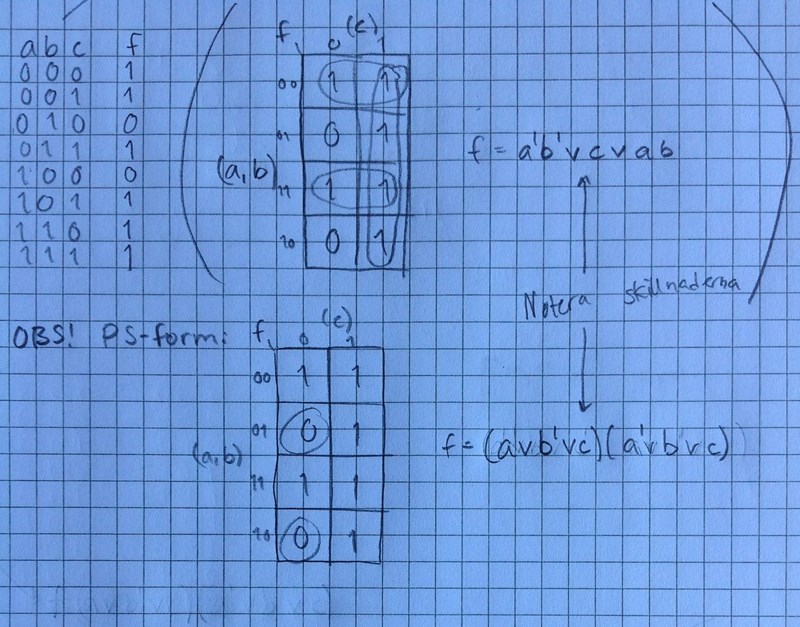 a b c f
0 0 0 1
0 0 1 1
0 1 0 0
0 1 1 1
1 0 0 0
1 0 1 1
1 1 0 1
1 1 1 1
f (c)
0 1
00 1 1
01 0 1
(a,b)
11 1 1
10 0 1
f = a'b' v c v a b
Notera skillnaderna
OBS! PS-form:
f (c)
0 1
00 1 1
01 0 1
(a,b)
11 1 1
10 0 1
f = (a v b' v c)(a' v b v c)